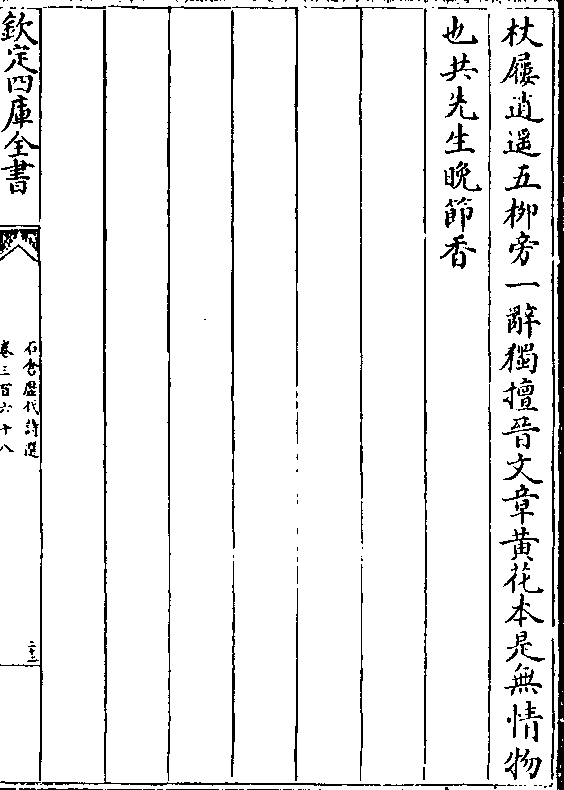 杖屨逍遥五柳旁一辭獨擅晉文章黄花本是無情物
也共先生晚節香
欽定四庫全書
石倉歷代詩選
卷三百六十八